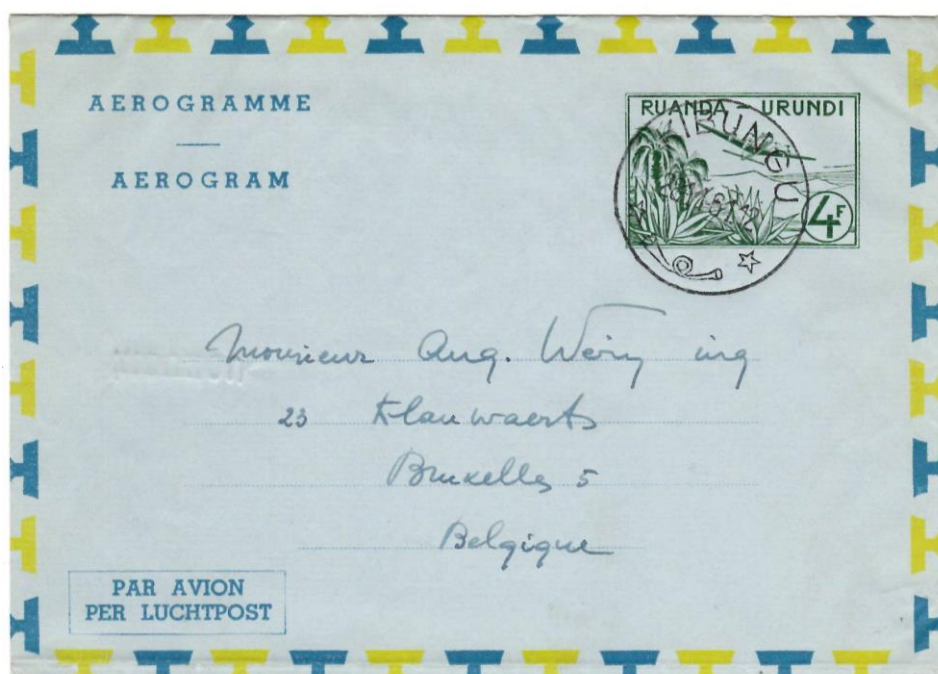 AEROGRAMME
AEROGRAM
RUANDA URUNDI
KIBUNGU
4F
Monsieur Aug. Weiny ing
23 Klauwaerts
Bruxelles 5
Belgique
PAR AVION
PER LUCHTPOST